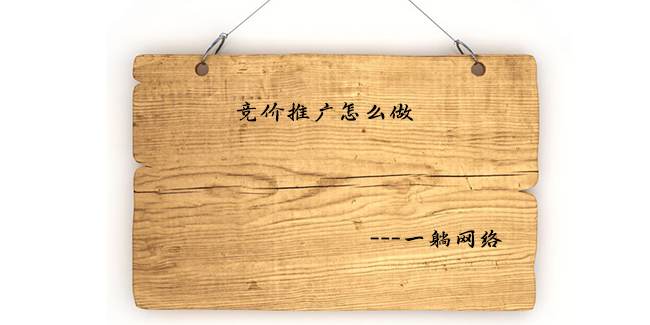 竞价推广怎么做
---一躺网络